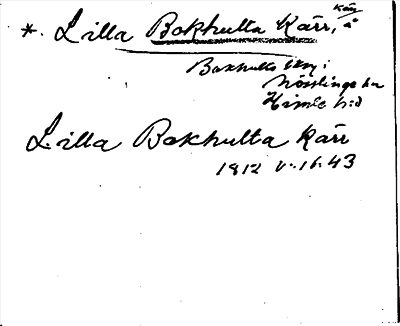 *. Lilla Bokhulta Kärr, Kärr å
Boxhults skog i
Nösslinge sn
Himle hd
Lilla Bokhulta Kärr
1812 v. 16.43